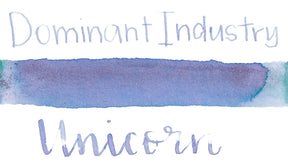 Dominant Industry
Unicorn